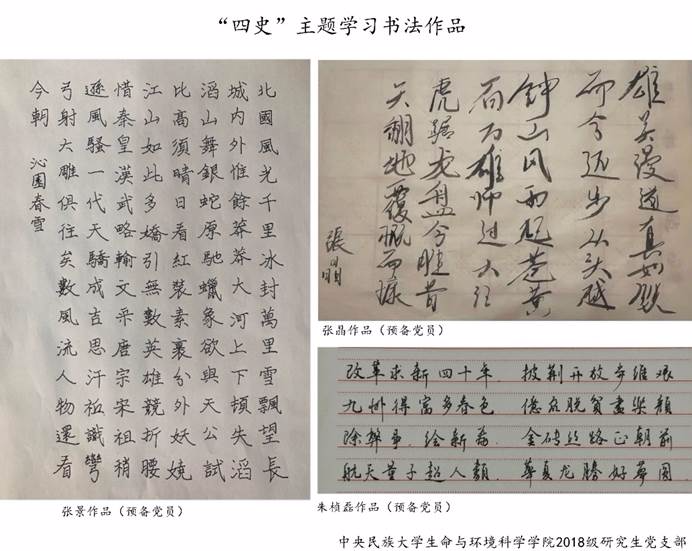 “四史”主题学习书法作品
北國風光千里冰封萬里雪飄望長
城内外惟餘莽莽大河上下頓失滔
滔山舞銀蛇原馳蠟象欲與天公試
比高須晴日看紅裝素裹分外妖嬈
江山如此多嬌引無數英雄競折腰
惜秦皇漢武略輸文采唐宗宋祖稍
遜風騷一代天驕成吉思汗祗識彎
弓射大雕俱往矣數風流人物還看
今朝 沁園春雪
张景作品（预备党员）
雄关漫道真如铁
而今迈步从头越
钟山风雨起苍黄
百万雄师过大江
虎踞龙盘今胜昔
天翻地覆慨而慷
張晶
张晶作品（预备党员）
改革求新四十年，披荆开放步维艰
九州得富多春色 億众脱贫盡笑顏
除弊事，绘新篇 金砖丝路正朝前
航天量子超人類 華夏龙腾好夢圆
朱桢磊作品（预备党员）
中央民族大学生命与环境科学学院2018级研究生党支部